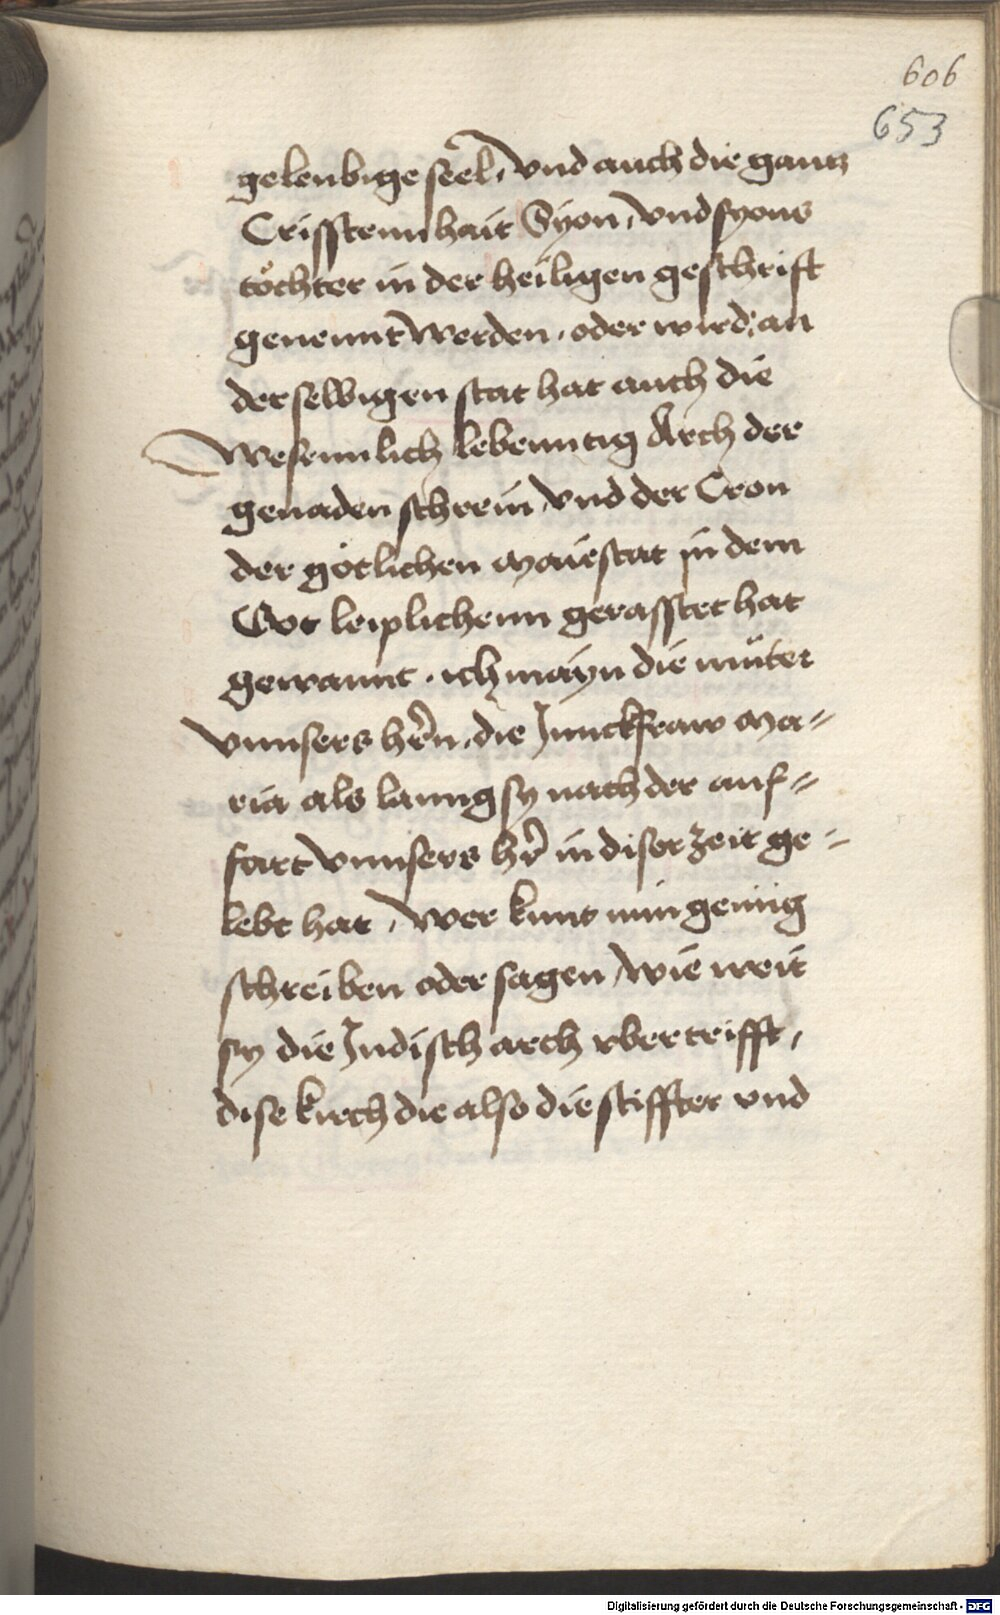 606
653
gelenbige seel, vnd auch die gantz
Crisstennhait Syon, vnd syons
töchter in der heiligen geschrift
genennt werden, oder wird, an
der selbigen stat hat auch die
Wesennlich lebenntig Arch der
genaden schrein, vnd der Cron
der götlichen Maiestat in dem
Got leiplichenn gerasstet hat
gewannt. ich mayn die müter
vnnsers hern, die Junckfraw Ma-
ria als lanng sy nach der auf-
fart vnnsers hr̄ in diser zeit ge-
lebt hat, Wer kunt nun genüg
schreiben oder sagen, wie weit
sy die Judisch arch vbertrifft,
dise kirch die also die stiffter vnd
Digitalisierung gefördert durch die Deutsche Forschungsgemeinschaft - DFG